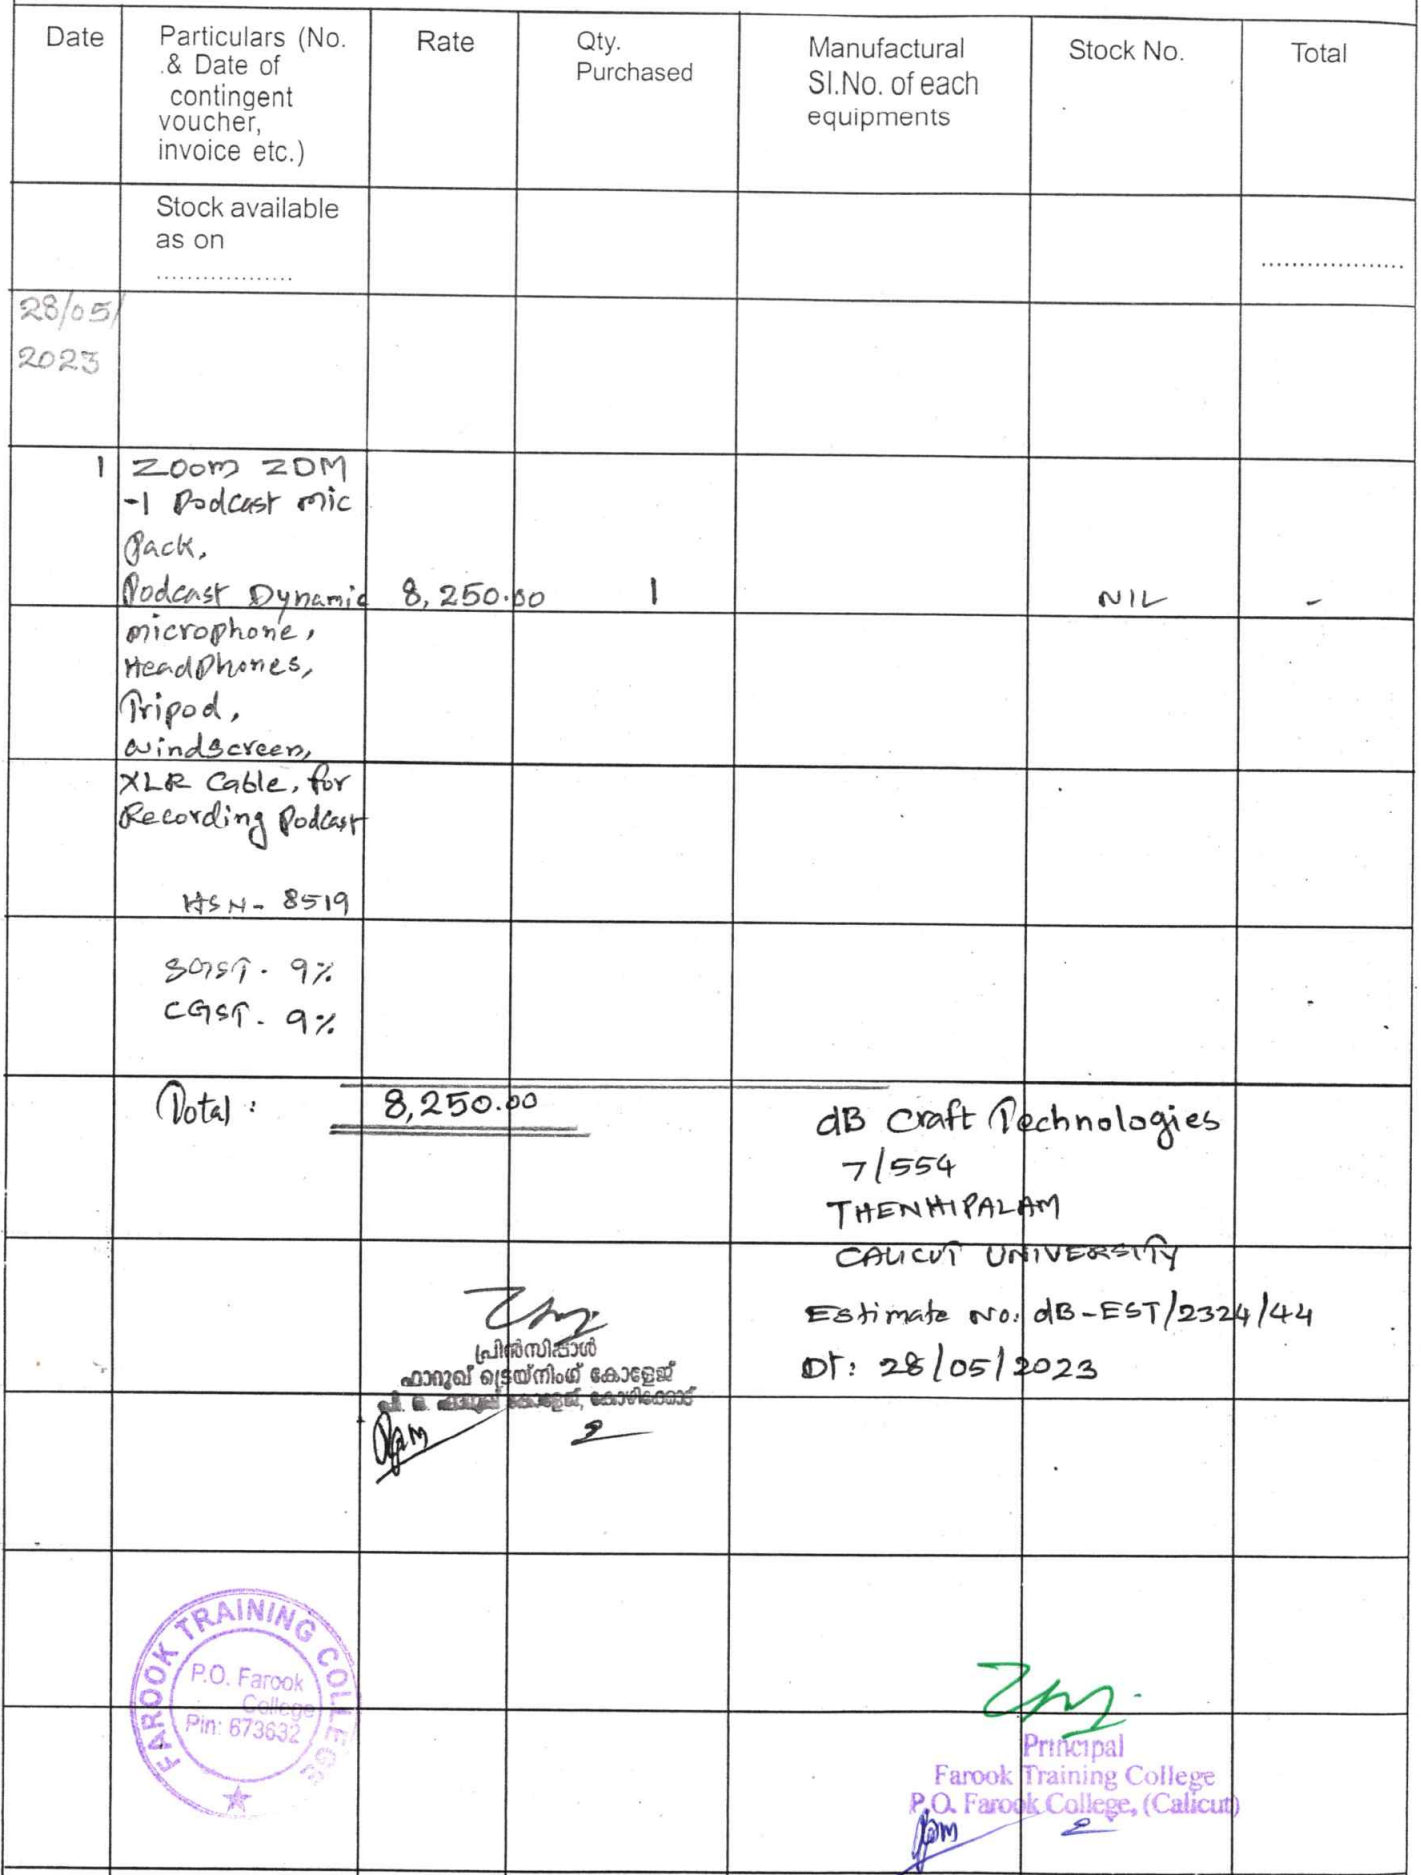 Date
Particulars (No.
.& Date of
contingent
voucher,
invoice etc.)
Rate
Qty.
Purchased
Manufactural
SI.No. of each
equipments
Stock No.
Total
Stock available
as on
..................
...................
28/05/
2023
1
Zoom ZDM
-1 Podcast mic
Pack,
Podcast Dynamic
8,250.00
1
NIL
-
microphone,
Headphones,
Tripod,
windscreen,
XLR Cable, for
Recording Podcast
HSN- 8519
SGST. 9%
CGST. 9%
Total :
8,250.00
dB Craft Technologies
7/554
THENHIPALAM
CALICUT UNIVERSITY
Estimate No: dB-EST/2324/44
DT: 28/05/2023
പ്രിൻസിപ്പാൾ
ഫാറൂഖ് ട്രെയ്നിംഗ് കോളേജ്
പി. ഒ. ഫാറൂഖ് കോളേജ്, കോഴിക്കോട്
FAROOK TRAINING COLLEGE
P.O. Farook
College
Pin: 673632
Principal
Farook Training College
P.O. Farook College, (Calicut)